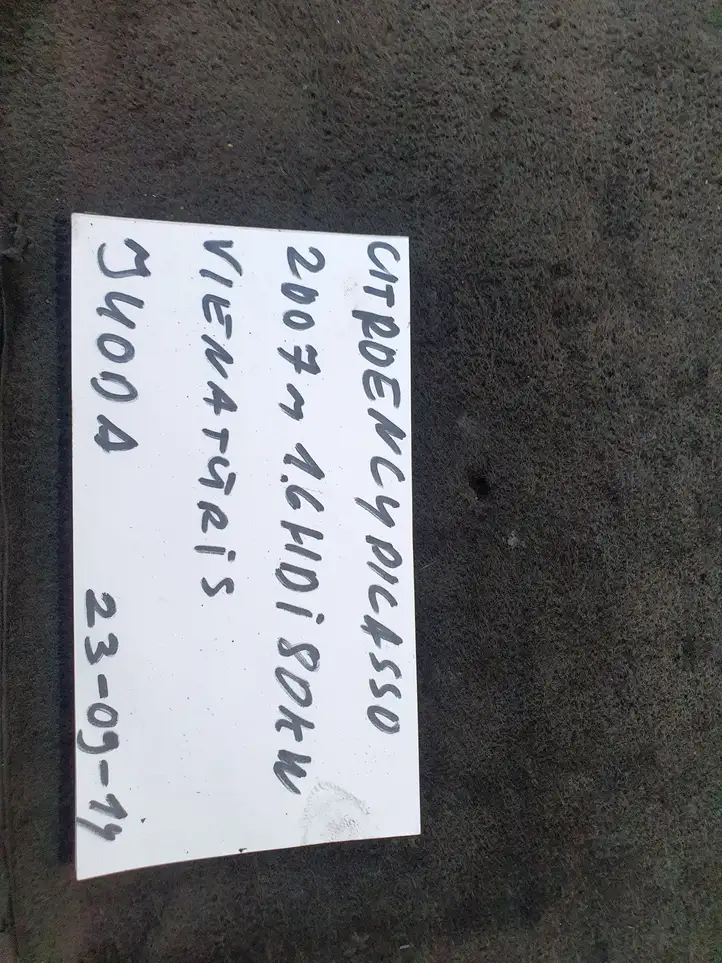 CITROEN C4 PICASSO
2007m 1.6HDi 80kW
VIENATŪRIS
J400A 23-09-14